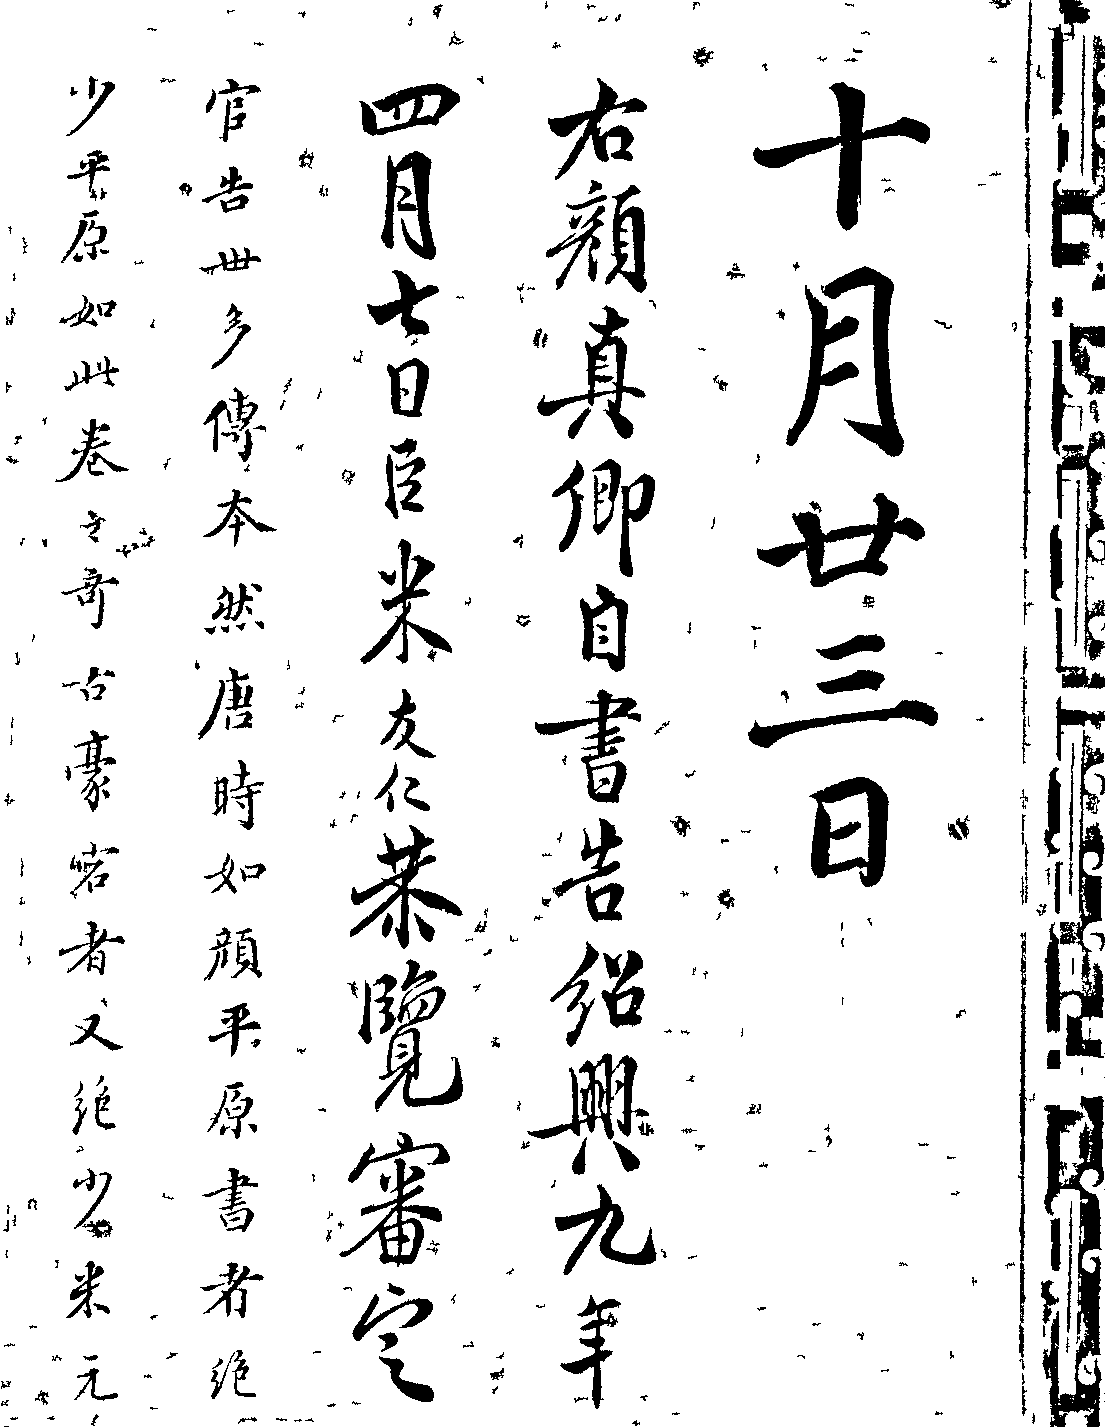 十月廿三日
右顏真卿自書告紹興九年
四月七日臣米友仁恭覽審定
官告世多傳本然唐時如顏平原書者絕
少平原如此卷之奇古豪宕者又絕少米元